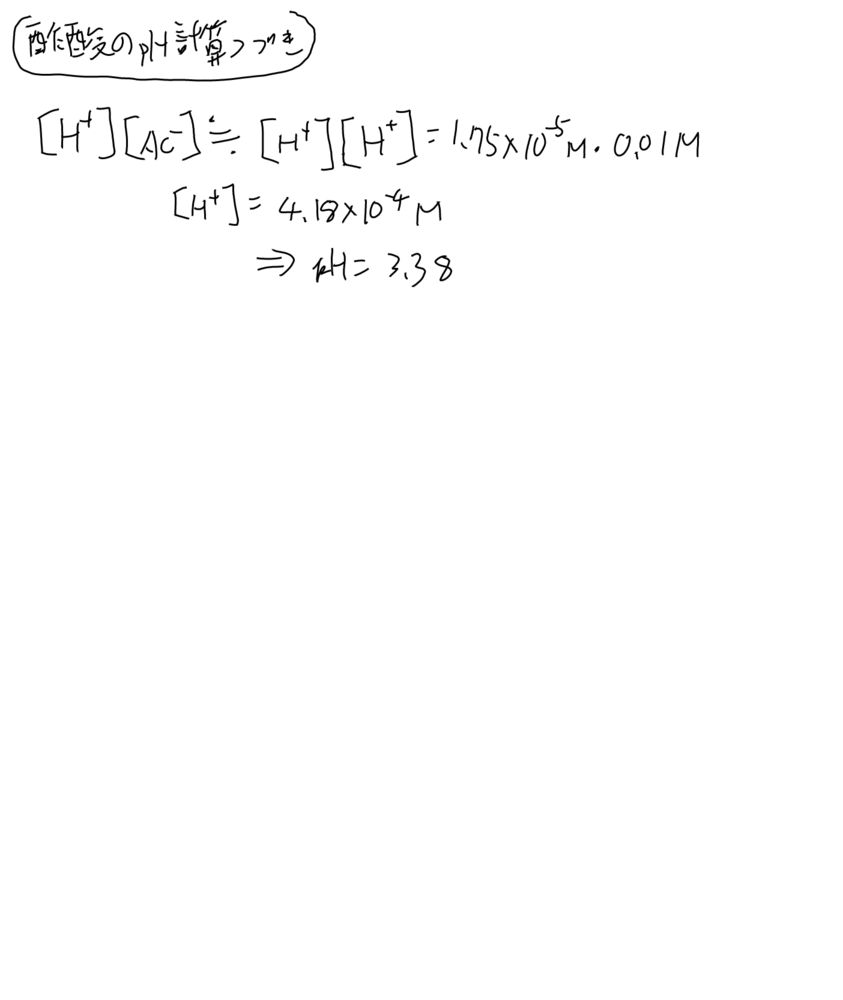 酢酸のpH計算つづき
[H⁺][Ac⁻]≒[H⁺][H⁺]=1.75×10⁻⁵M・0.01M
[H⁺]=4.18×10⁻⁴M
⇒pH=3.38